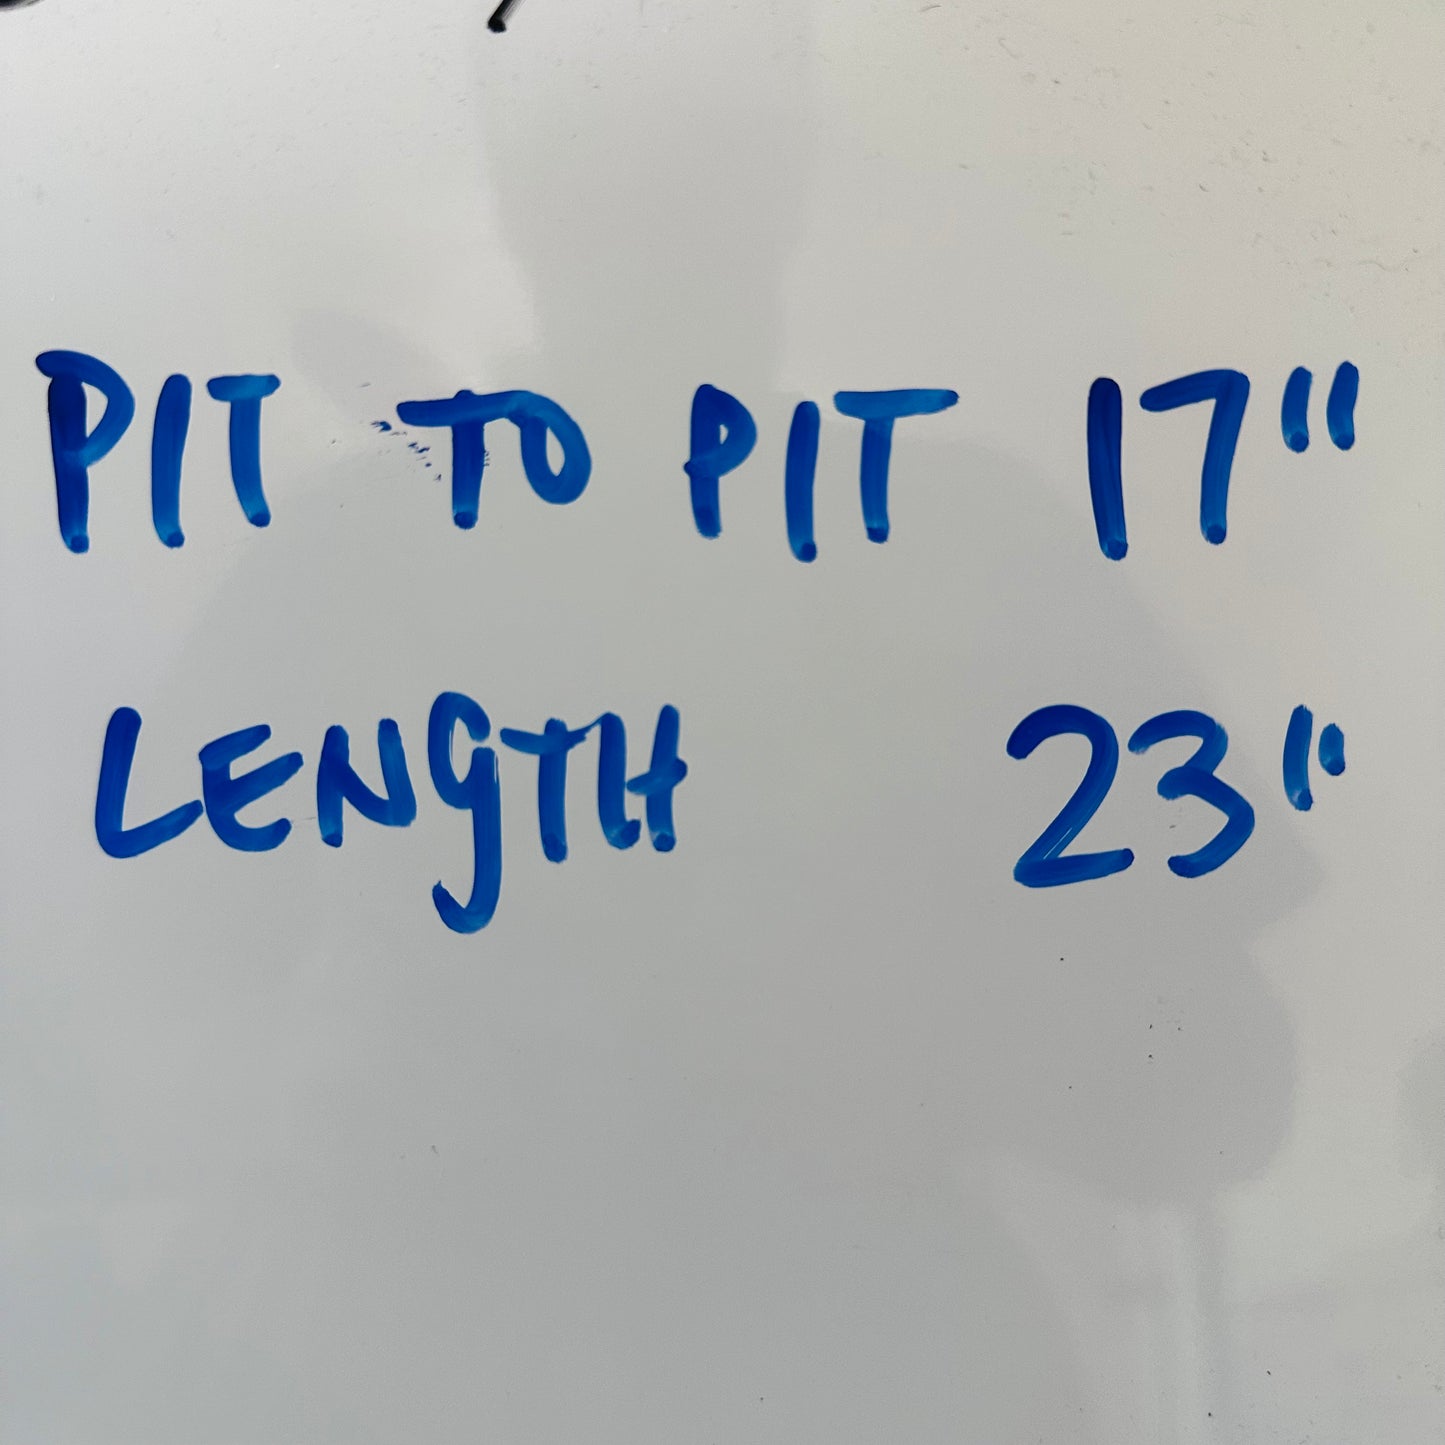 PIT TO PIT 17"
LENGTH 23"